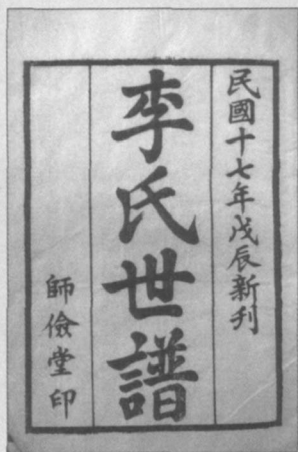 民國十七年戊辰新刊
李氏世譜
師儉堂印